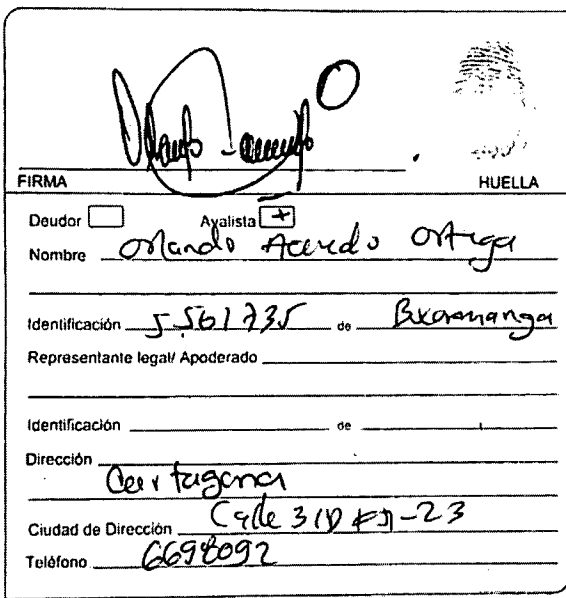 FIRMA HUELLA
Deudor Avalista +
Nombre Orlando Acevedo Ortega
Identificación 5561735 de Bxaramanga
Representante legal/ Apoderado
Identificación de
Dirección
Cartagena
Ciudad de Dirección Calle
Teléfono 6698092